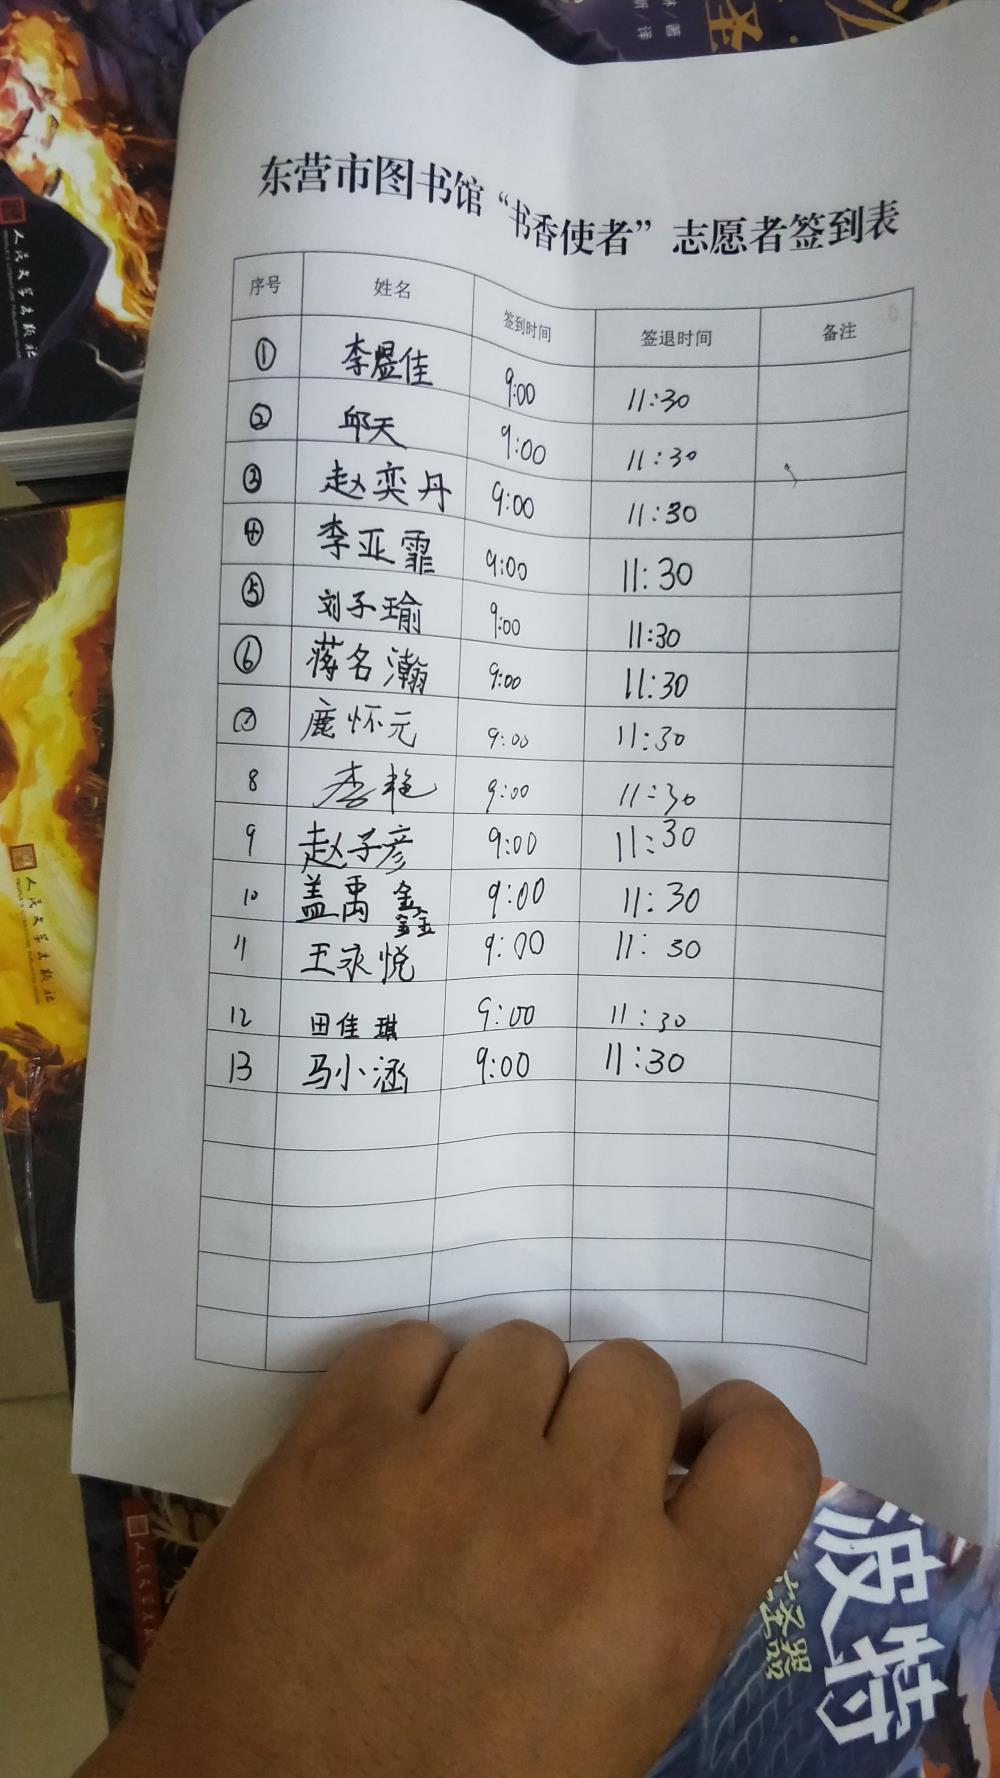 林/著
昕/译
人民文学出版社
东营市图书馆“书香使者”志愿者签到表
序号 姓名 签到时间 签退时间 备注
① 李煜佳 9:00 11:30
② 邱天 9:00 11:30
③ 赵奕丹 9:00 11:30
④ 李亚霏 9:00 11:30
⑤ 刘子瑜 9:00 11:30
⑥ 蒋名瀚 9:00 11:30
⑦ 鹿怀元 9:00 11:30
8 李艳 9:00 11:30
9 赵子彦 9:00 11:30
10 盖禹鑫 9:00 11:30
11 王永悦 9:00 11:30
12 田佳琪 9:00 11:30
13 马小涵 9:00 11:30
人民文学出版社
人民文学
波特